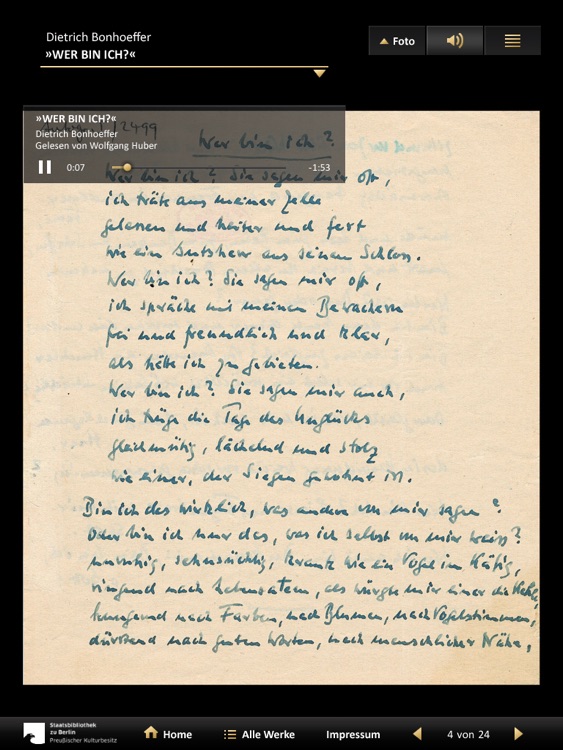 Dietrich Bonhoeffer
»WER BIN ICH?«
Foto
»WER BIN ICH?«
Dietrich Bonhoeffer
Gelesen von Wolfgang Huber
0:07
-1:53
12499
Wer bin ich?
Wer bin ich? Sie sagen mir oft,
ich träte aus meiner Zelle
gelassen und heiter und fest
wie ein Gutsherr aus seinem Schloss.
Wer bin ich? Sie sagen mir oft,
ich spräche mit meinen Bewachern
frei und freundlich und klar,
als hätte ich zu gebieten.
Wer bin ich? Sie sagen mir auch,
ich trüge die Tage des Unglücks
gleichmütig, lächelnd und stolz
wie einer, der Siegen gewohnt ist.
Bin ich das wirklich, was andere von mir sagen?
Oder bin ich nur das, was ich selbst von mir weiss?
unruhig, sehnsüchtig, krank wie ein Vogel im Käfig,
ringend nach Lebensatem, als würgte mir einer die Kehle,
hungernd nach Farben, nach Blumen, nach Vogelstimmen,
dürstend nach guten Worten, nach menschlicher Nähe,
Staatsbibliothek
zu Berlin
Preußischer Kulturbesitz
Home
Alle Werke
Impressum
4 von 24